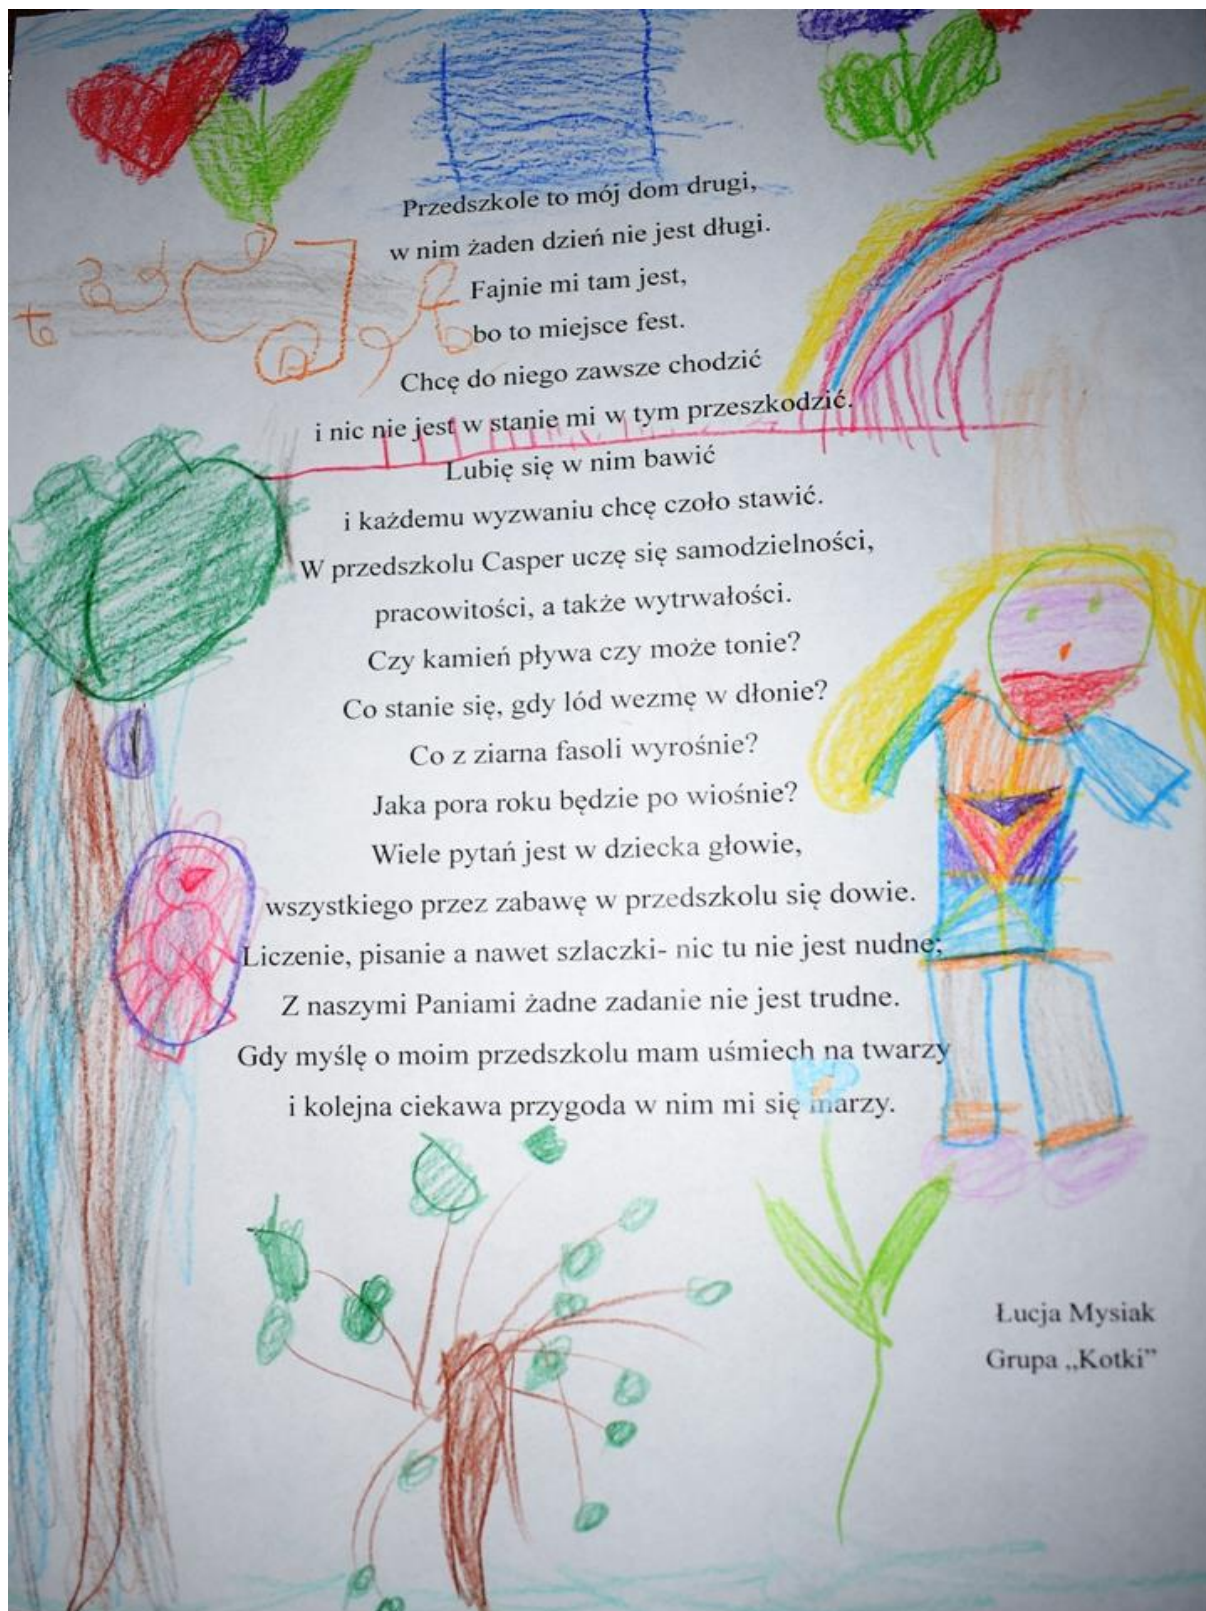 Przedszkole to mój dom drugi,
w nim żaden dzień nie jest długi.
Fajnie mi tam jest,
bo to miejsce fest.
Chcę do niego zawsze chodzić
i nic nie jest w stanie mi w tym przeszkodzić.
Lubię się w nim bawić
i każdemu wyzwaniu chcę czoło stawić.
W przedszkolu Casper uczę się samodzielności,
pracowitości, a także wytrwałości.
Czy kamień pływa czy może tonie?
Co stanie się, gdy lód wezmę w dłonie?
Co z ziarna fasoli wyrośnie?
Jaka pora roku będzie po wiośnie?
Wiele pytań jest w dziecka głowie,
wszystkiego przez zabawę w przedszkolu się dowie.
Liczenie, pisanie a nawet szlaczki- nic tu nie jest nudne;
Z naszymi Paniami żadne zadanie nie jest trudne.
Gdy myślę o moim przedszkolu mam uśmiech na twarzy
i kolejna ciekawa przygoda w nim mi się marzy.
Łucja Mysiak
Grupa „Kotki”